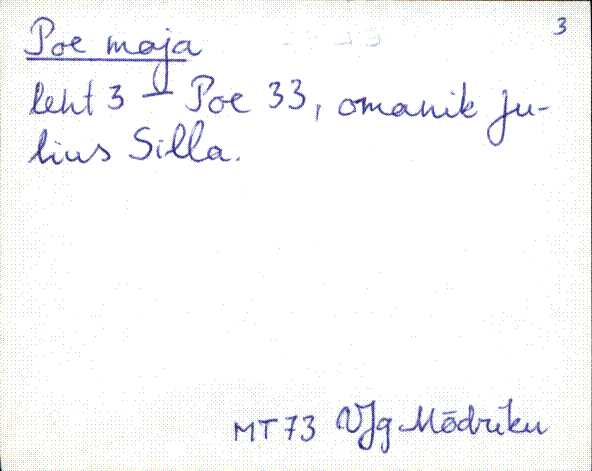 3
Poe maja
leht 3 – Poe 33, omanik Ju-
lius Silla.
MT 73 VJg Mõdriku